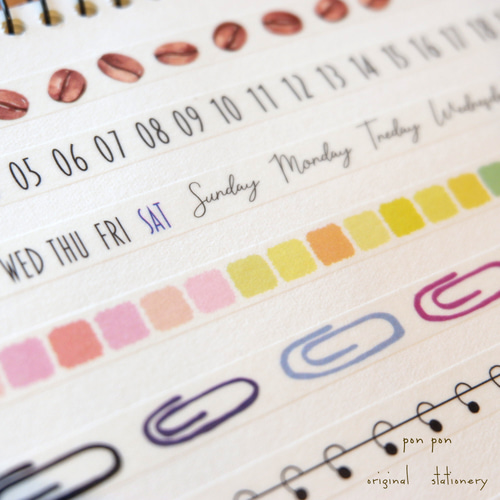 05 06 07 08 09 10 11 12 13 14 15 16 17 18
WED THU FRI SAT Sunday Monday Tneday Wednesday
pon pon
original stationery